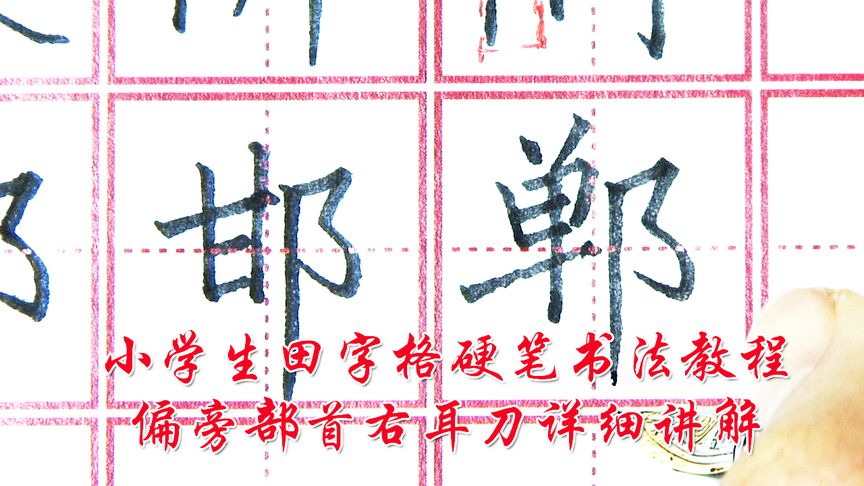 邯郸
小学生田字格硬笔书法教程
偏旁部首右耳刀详细讲解